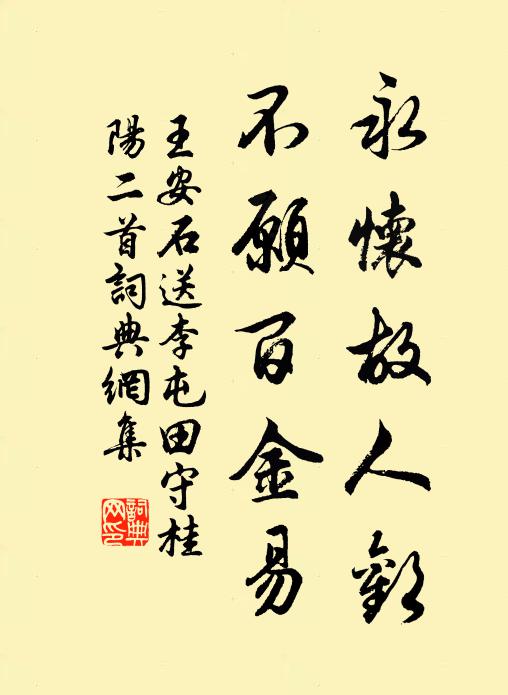 永懷故人歡
不願百金易
王安石送李屯田守桂
陽二首詞典網集
詞典
网印